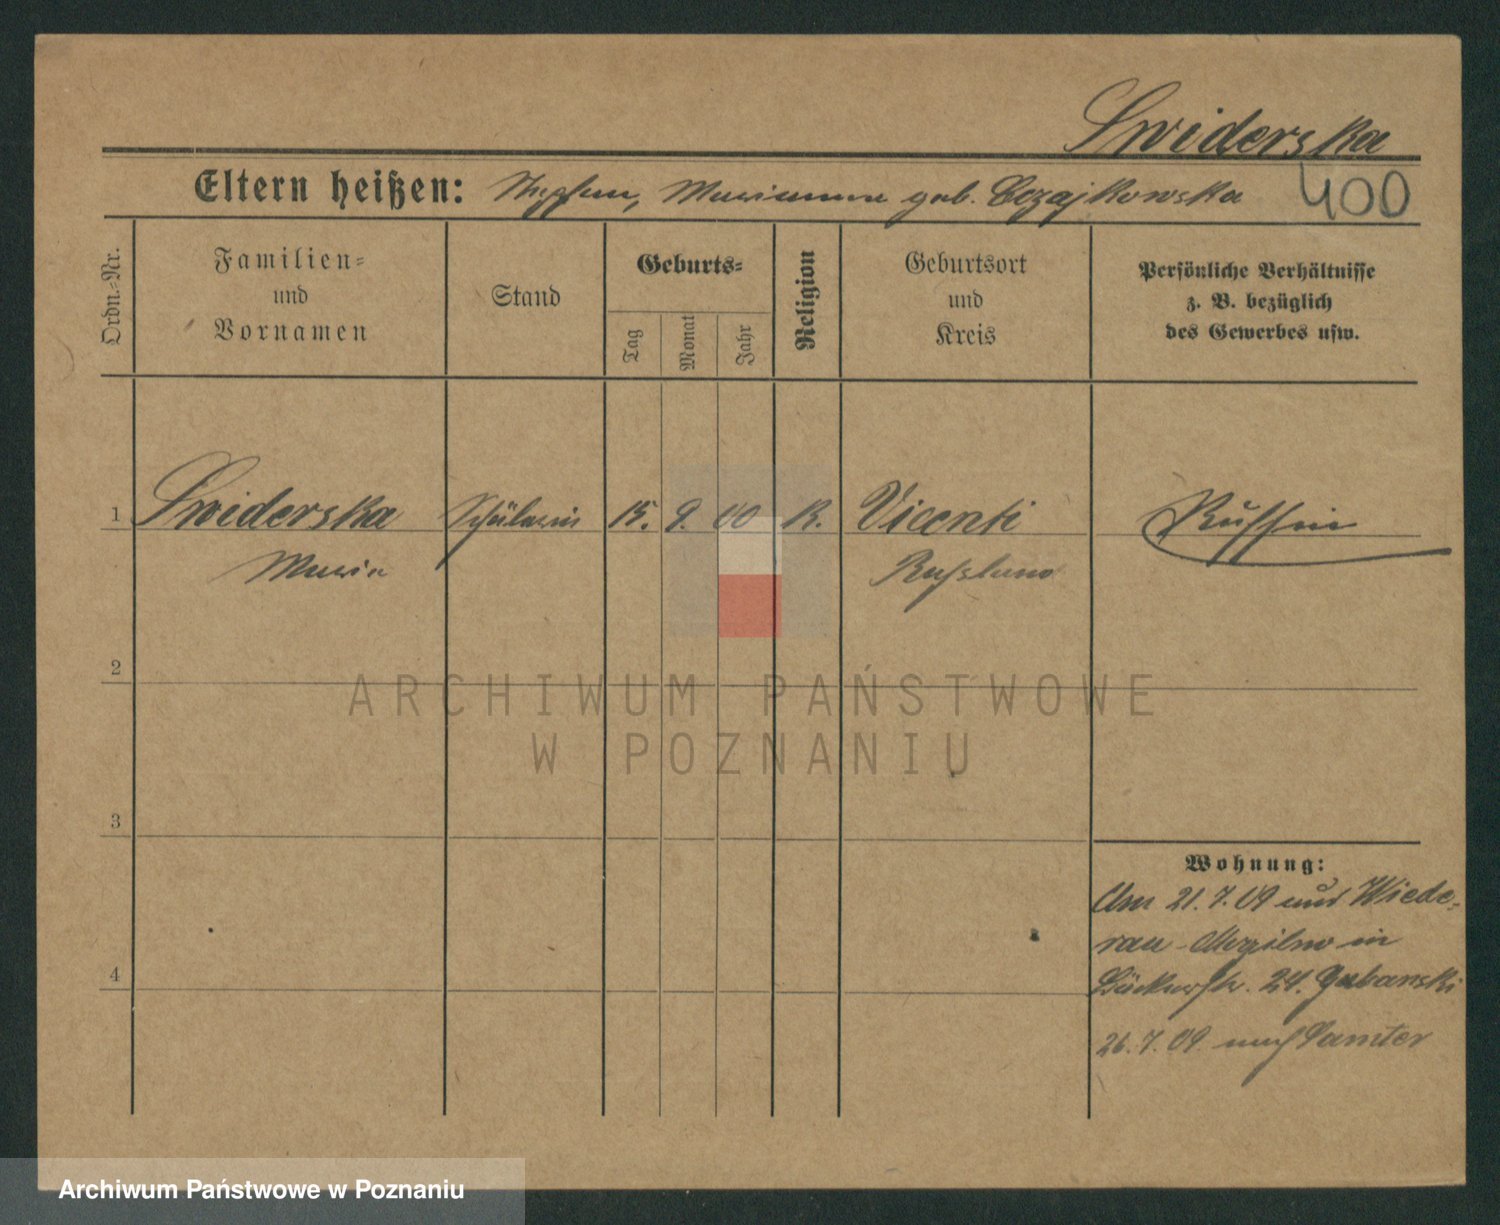 Swiderska
Eltern heißen: Stephan, Marianna geb. Czajkowska
400
Ordn.-Nr.
Familien-
und
Vornamen
Stand
Geburts-
Tag
Monat
Jahr
Religion
Geburtsort
und
Kreis
Persönliche Verhältnisse
z. B. bezüglich
des Gewerbes usw.
1 Swiderska Schülerin 15. 9. 00 K. Vicenti Russin
Maria Russland
2
ARCHIWUM PAŃSTWOWE
W POZNANIU
3
Wohnung:
Am 21.7.09 aus Wiede-
rau - in
Bäckerstr. 24.
4
26.7.09. nach Samter
Archiwum Państwowe w Poznaniu